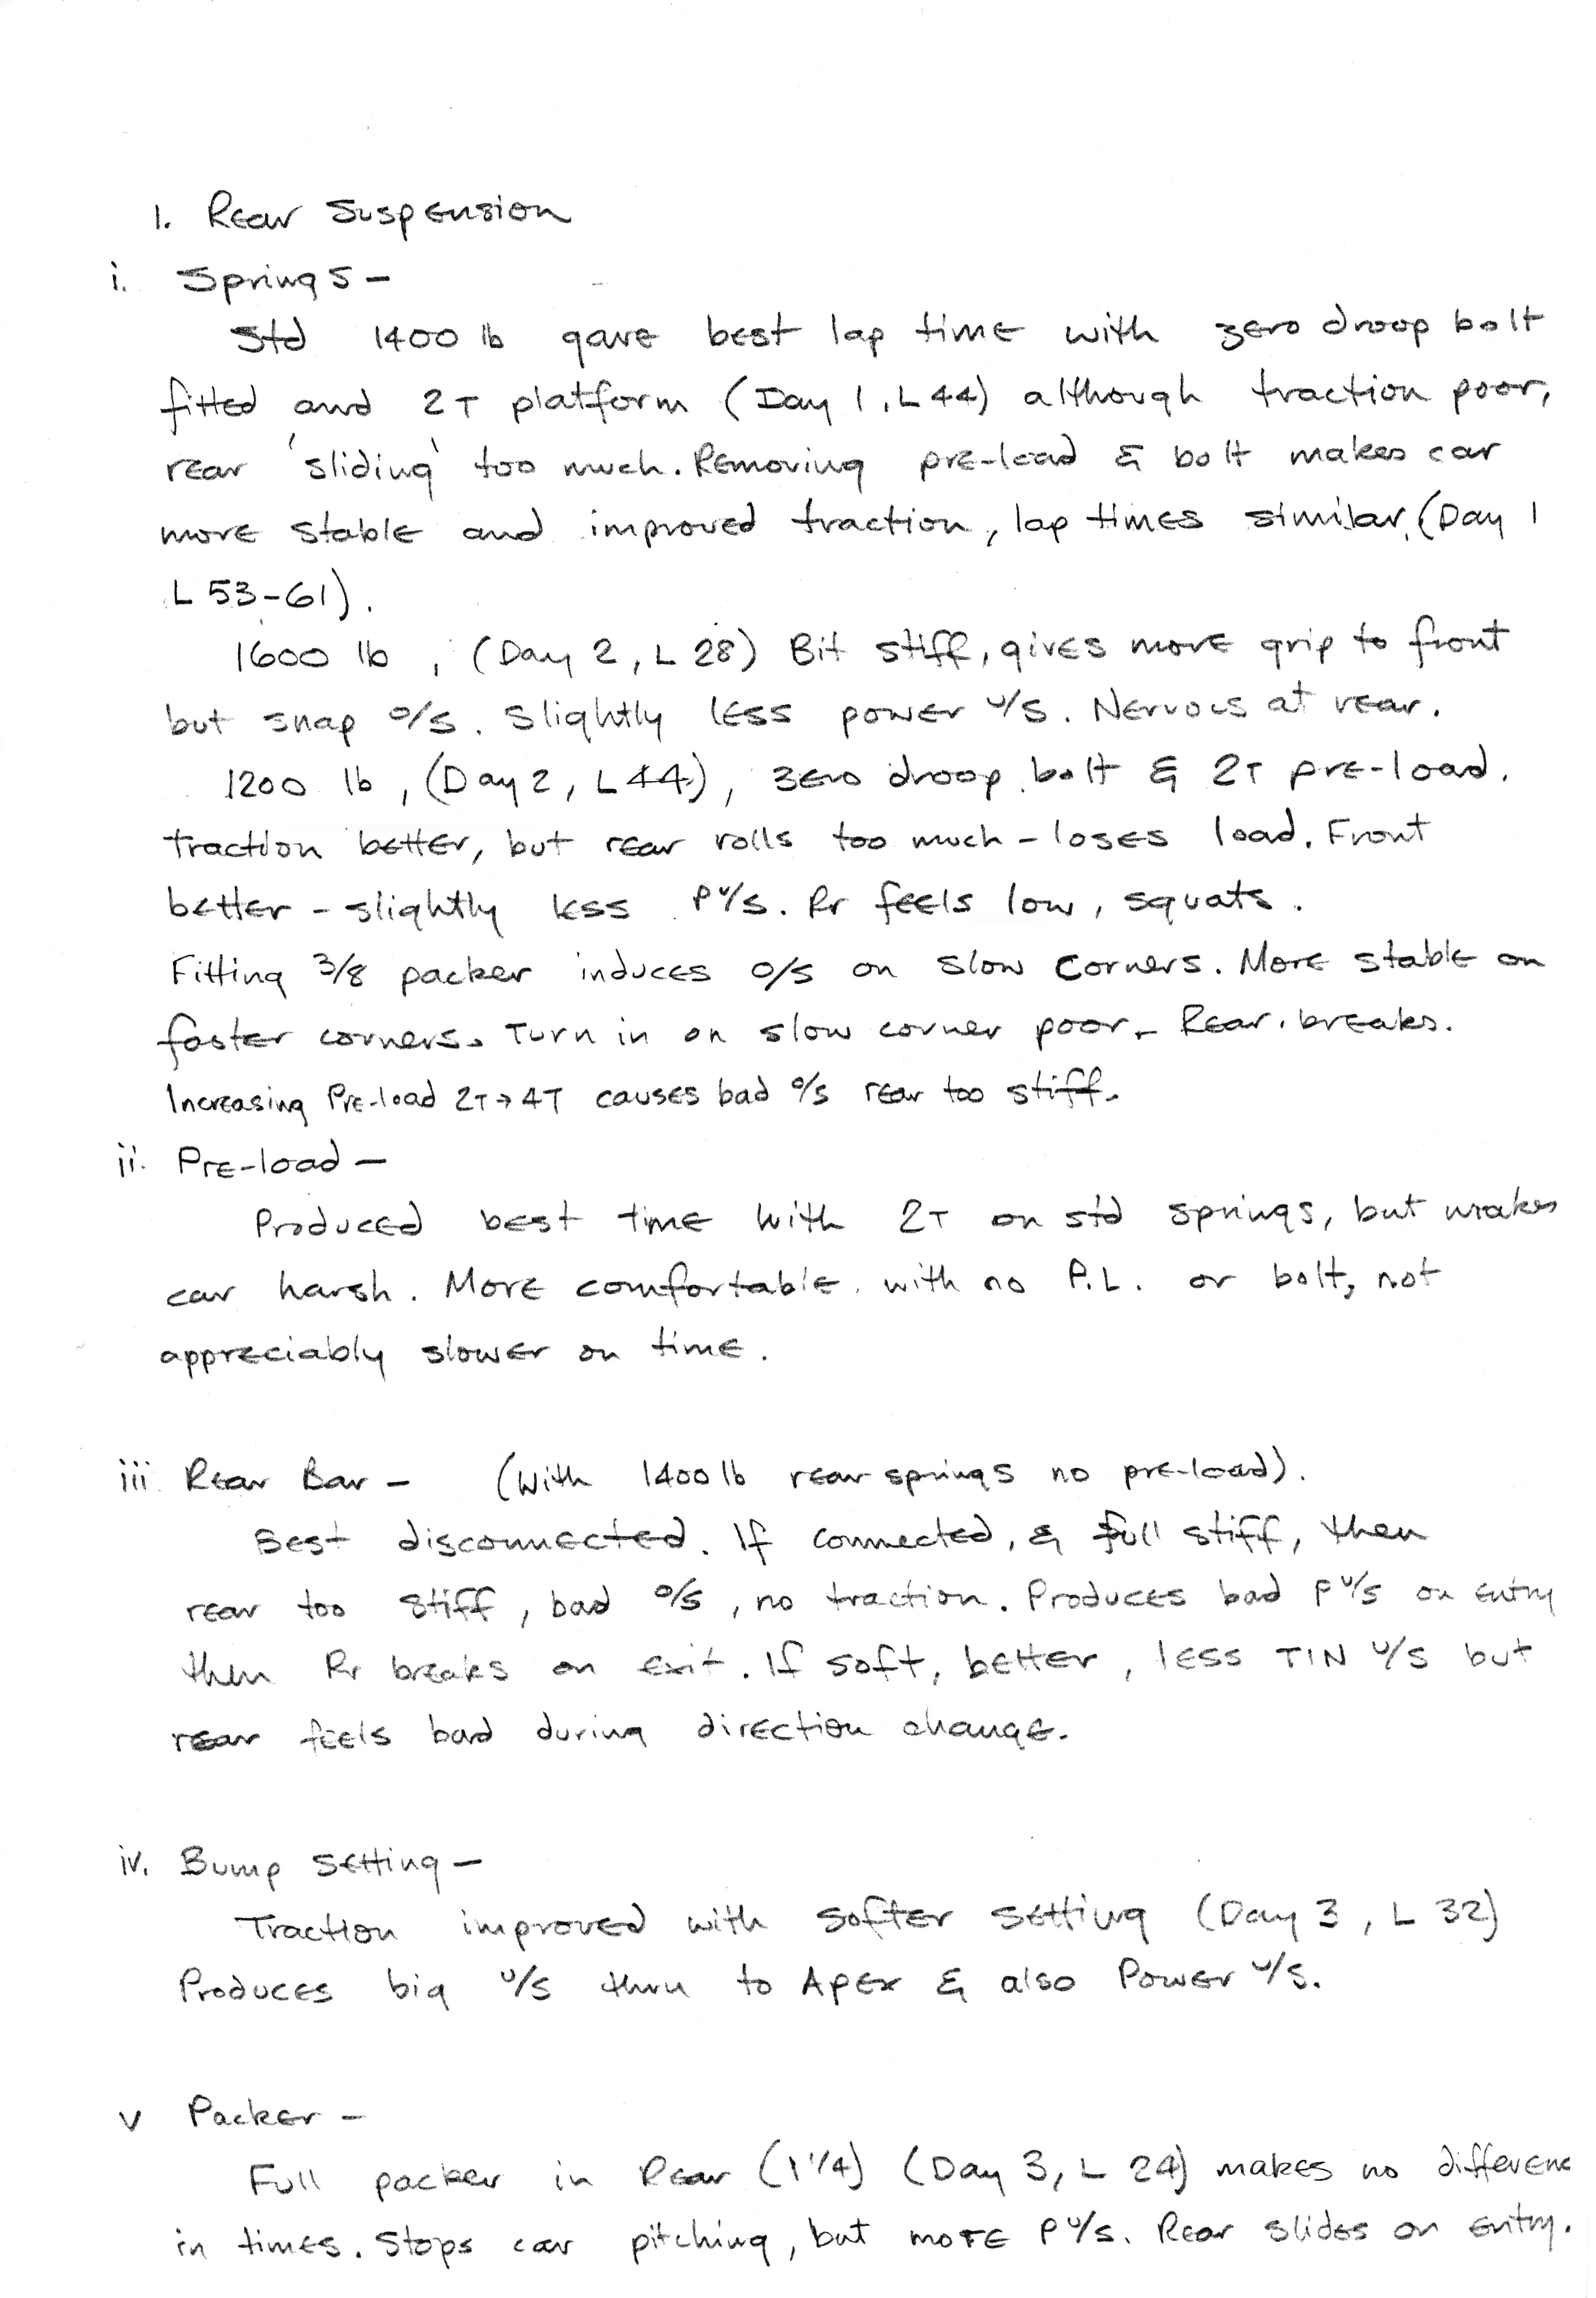 1. Rear Suspension
i. Springs -
Std 1400 lb gave best lap time with zero droop bolt
fitted and 2T platform (Day 1, L 44) although traction poor,
rear 'sliding' too much. Removing pre-load & bolt makes car
more stable and improved traction, lap times similar. (Day 1
L 53-61).
1600 lb, (Day 2, L 28) Bit stiff, gives more grip to front
but snap o/s. Slightly less power u/s. Nervous at rear.
1200 lb, (Day 2, L 44), zero droop bolt & 2T pre-load.
Traction better, but rear rolls too much - loses load. Front
better - slightly less P u/s. Rr feels low, squats.
Fitting 3/8 packer induces o/s on slow corners. More stable on
faster corners. Turn in on slow corner poor - Rear breaks.
Increasing Pre-load 2T → 4T causes bad o/s rear too stiff.
ii. Pre-load -
Produced best time with 2T on std springs, but makes
car harsh. More comfortable with no P.L. or bolt, not
appreciably slower on time.
iii Rear Bar - (With 1400 lb rear springs no pre-load).
Best disconnected. If connected, & full stiff, then
rear too stiff, bad o/s, no traction. Produces bad P u/s on entry
then Rr breaks on exit. If soft, better, less TIN u/s but
rear feels bad during direction change.
iv. Bump Setting -
Traction improved with softer setting (Day 3, L 32)
Produces big u/s thru to Apex & also Power u/s.
v Packer -
Full packer in Rear (1 1/4) (Day 3, L 24) makes no differenc
in times. Stops car pitching, but more P u/s. Rear slides on entry.